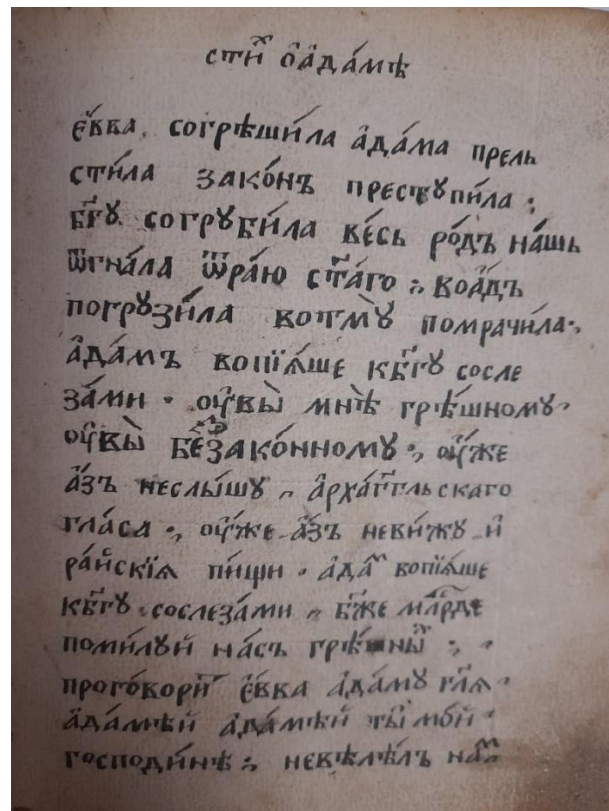 сти́х ѡ҆а҆да́мѣ
е҆́вва, согрѣши́ла а҆да́ма прель
сти́ла зако́нъ престꙋпи́ла ;
бг҃ꙋ согрꙋби́ла ве́сь ро́дъ на́шь
ѿгна́ла ѿра́ю ст҃а́го ; воа҆́дъ
погрꙋзи́ла вотмꙋ̀ помрачи́ла ;
а҆да́мъ вопїѧ́ше кбг҃ꙋ сосле
за́ми · оу҆вы̀ мнѣ̀ грѣ́шномꙋ ·
оу҆вы̀ беззако́нномꙋ ; оу҆́же
а҆́зъ неслы́шꙋ , а҆рха́гг҃льскаго
гла́са ; оу҆́же а҆́зъ неви́жꙋ и҆
ра́йскїѧ пи́щи · а҆да́м вопїѧ́ше
кбг҃ꙋ сослеза́ми , бж҃е млрⷭ҇де
поми́лꙋй на́съ грѣ́шныⷯ ; ,
прогово́риⷧ е҆́вва а҆да́мꙋ гл҃ѧ ·
а҆да́мѣй а҆да́мѣй ты̀ мо́й ·
господи́не ; невелѣ́лъ на́мⸯ